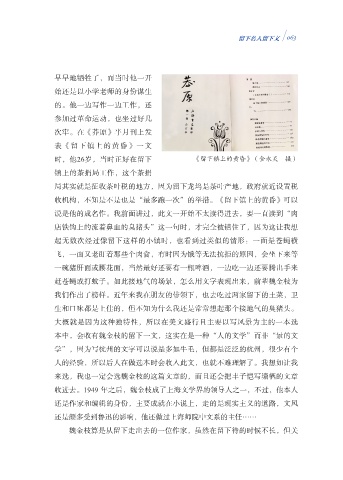 留下名人留下文 / 063
早早地牺牲了，而当时他一开
始还是以小学老师的身份谋生
的，他一边写作一边工作，还
参加过革命运动，也坐过好几
次牢。在《莽原》半月刊上发
表《留下镇上的黄昏》一文
时，他26岁，当时正好在留下
镇上的茶捐局工作，这个茶捐
莽原
《留下镇上的黄昏》（金水义 摄）
局其实就是征收茶叶税的地方，因为留下龙坞是茶叶产地，政府就近设置税
收机构，不知是不是也是“最多跑一次”的举措。《留下镇的黄昏》可以
说是他的成名作，我前面讲过，此文一开始不太读得进去，要一直读到“肉
店铁钩上的流着鼻血的臭猪头”这一句时，才完全被镇住了，因为这让我想
起无数次经过像留下这样的小镇时，也看到过类似的情形：一面是苍蝇横
飞，一面又老街石都些个肉畜，有时因为饿等无法抗拒的原因，会坐下来等
一碗猪肝面或腰花面，当然最好还要有一瓶啤酒，一边吃一边还要腾出手来
赶苍蝇或打蚊子。如此接地气的场景，怎么用文字表现出来，前辈魏金枝为
我们作出了榜样。近年来我在朋友的带领下，也去吃过两家留下的土菜，卫
生和口味都是上佳的，但不知为什么我还是常常想起那个接地气的臭猪头。
大概就是因为这种独特性，所以在美文盛行且主要以写风景为主的一本选
本中，会收有魏金枝的留下一文，这实在是一种“人的文学”而非“景的文
学”，因为写杭州的文字可以说是多如牛毛，但都是泛泛的杭州，很少有个
人的经验，所以后人在做选本时会收入此文，也就不难理解了。我想如让我
来选，我也一定会选魏金枝的这篇文章的，而且还会把丰子恺写珊瓠的文章
收进去。1949 年之后，魏金枝成了上海文学界的领导人之一，不过，他本人
还是作家和编辑的身份，主要成就在小说上，走的是现实主义的道路，文风
还是颇多受到鲁迅的影响，他还做过上海师院中文系的主任……
魏金枝算是从留下走出去的一位作家，虽然在留下待的时候不长，但关